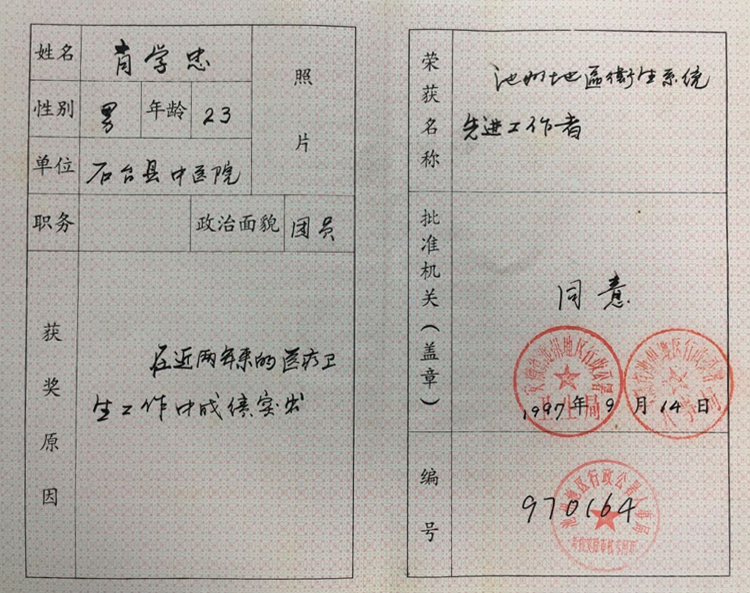 姓名 肖学忠
照片
性别 男 年龄 23
单位 石台县中医院
职务 政治面貌 团员
获奖原因
在近两年来的医疗卫
生工作中成绩突出
荣获名称
池州地區衛生系统
先进工作者
批准机关(盖章)
同意
1997年9月14日
卫生局
编号
970164
池州地区行政公署人事局